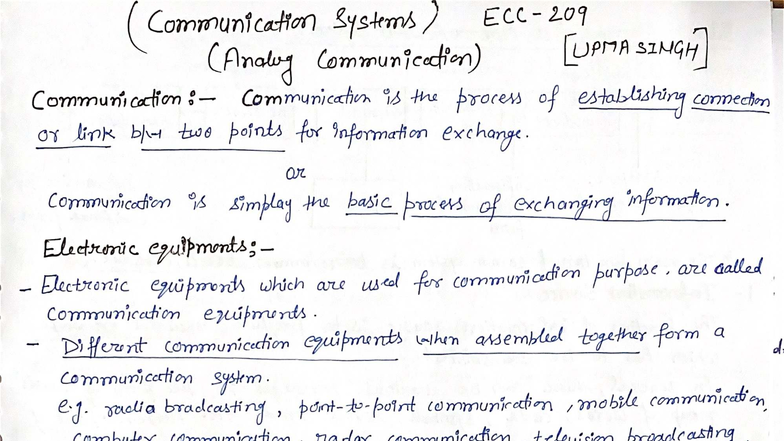 (Communication Systems) ECC-209
(Analog Communication) [UPMA SINGH]
Communication :- Communication is the process of establishing connection
or link b/w two points for information exchange.
or
Communication is simplay the basic process of exchanging information.
Electronic equipments :-
- Electronic equipments which are used for communication purpose. are called
communication equipments.
- Different communication equipments when assembled together form a
communication system.
e.g. radia bradcasting, point-to-point communication, mobile communication,
computer communication, radar communication, television broadcasting